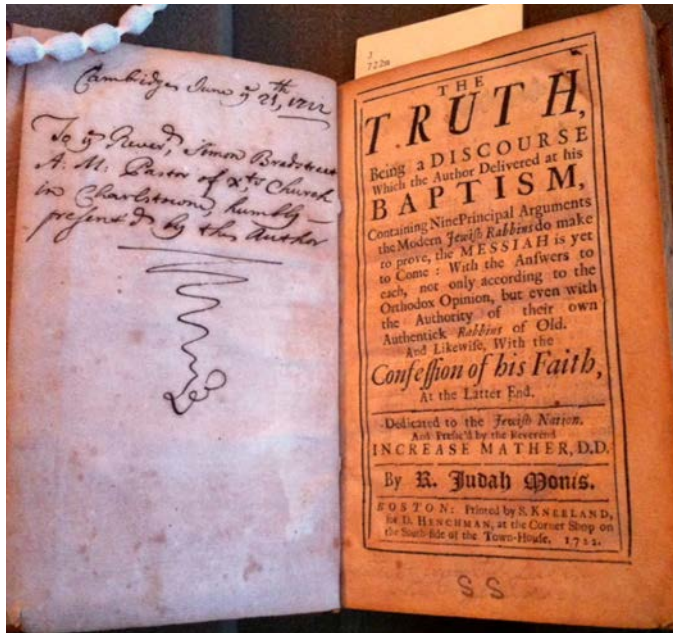 Cambridge June yͤ 21ᵗʰ, 1722
To yͤ Reverᵈ, Simon Bradstreet
A. M: Pastor of xᵗˢ Church
in Charlstown, humbly –
presentᵈ by the Author
J
722m
THE
TRUTH,
Being a DISCOURSE
Which the Author Delivered at his
BAPTISM,
Containing Nine Principal Arguments
the Modern Jewiſh Rabbins do make
to prove, the MESSIAH is yet
to Come : With the Anſwers to
each, not only according to the
Orthodox Opinion, but even with
the Authority of their own
Authentick Rabbins of Old.
And Likewiſe, With the
Confeſſion of his Faith,
At the Latter End.
Dedicated to the Jewiſh Nation,
And Prefac'd by the Reverend
INCREASE MATHER, D.D.
By R. Judah Monis.
BOSTON: Printed by S. KNEELAND,
for D. HENCHMAN, at the Corner Shop on
the South-ſide of the Town-Houſe. 1722.
S S